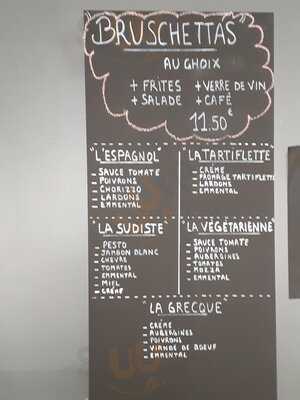 "BRUSCHETTAS"
AU CHOIX
+ FRITES + VERRE DE VIN
+ SALADE + CAFÉ
11.50€
"L'ESPAGNOL"
- SAUCE TOMATE
- POIVRONS
- CHORIZZO
- LARDONS
- EMMENTAL
"LA TARTIFLETTE"
- CRÈME
- FROMAGE TARTIFLETTE
- LARDONS
- EMMENTAL
"LA SUDISTE"
- PESTO
- JAMBON BLANC
- CHEVRE
- TOMATES
- EMMENTAL
- MIEL
- CRÈME
"LA VÉGÉTARIENNE"
- SAUCE TOMATE
- POIVRONS
- AUBERGINES
- TOMATES
- MOZZA
- EMMENTAL
"LA GRECQUE"
- CRÈME
- AUBERGINES
- POIVRONS
- VIANDE DE BOEUF
- EMMENTAL